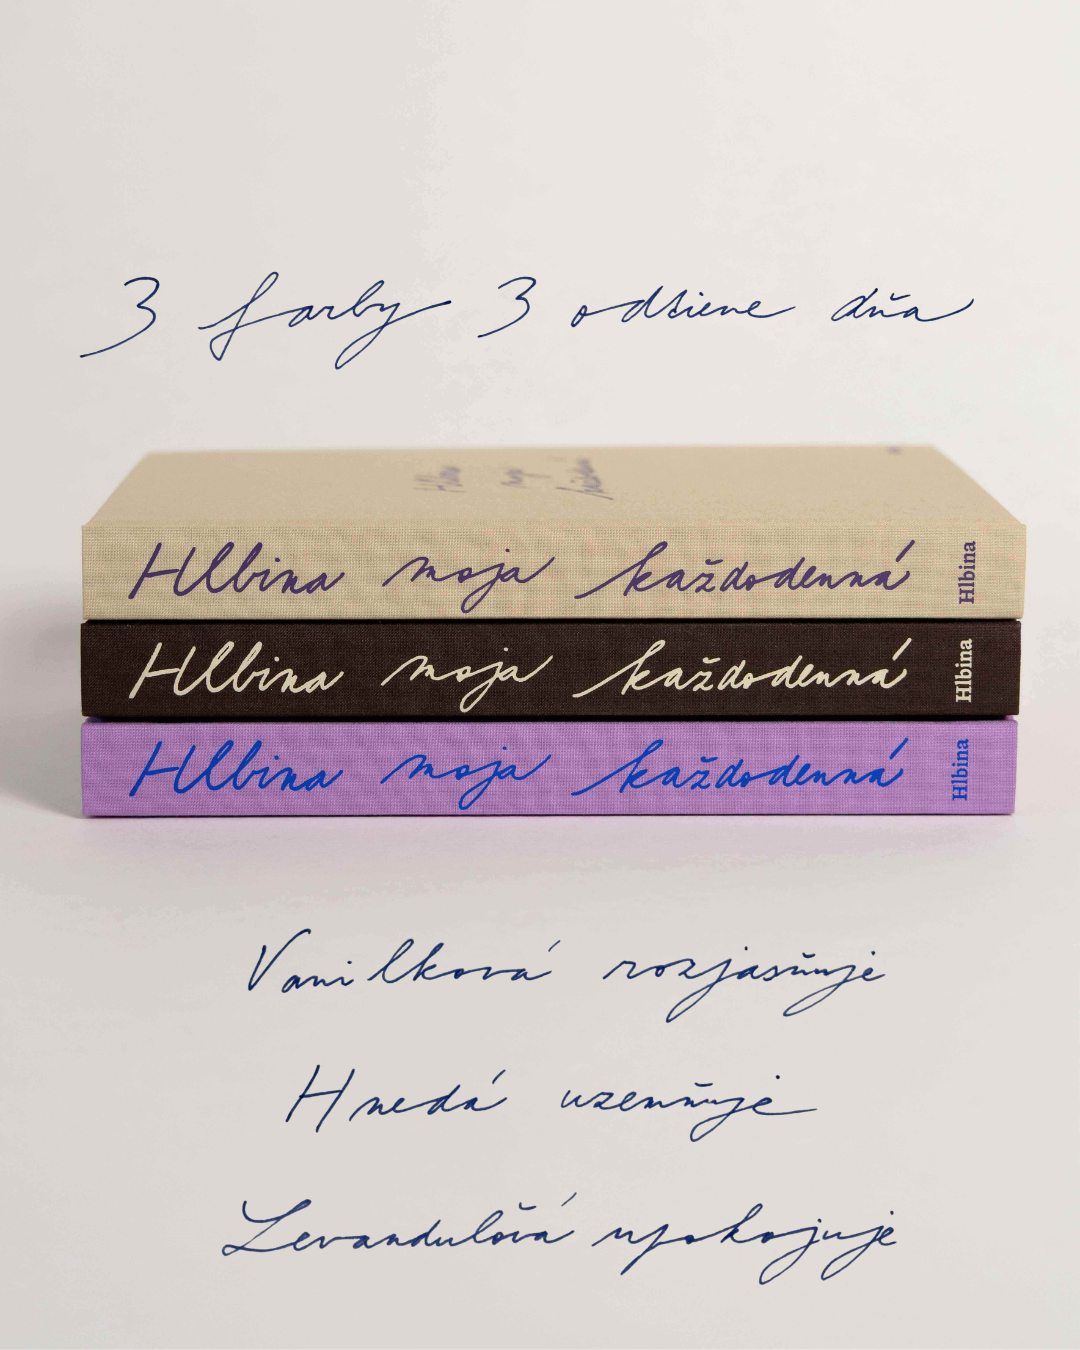 3 farby 3 odtiene dňa
Hlbina moja každodenná Hlbina
Hlbina moja každodenná Hlbina
Hlbina moja každodenná Hlbina
Vanilková rozjasňuje
Hnedá uzemňuje
Levanduľová upokojuje